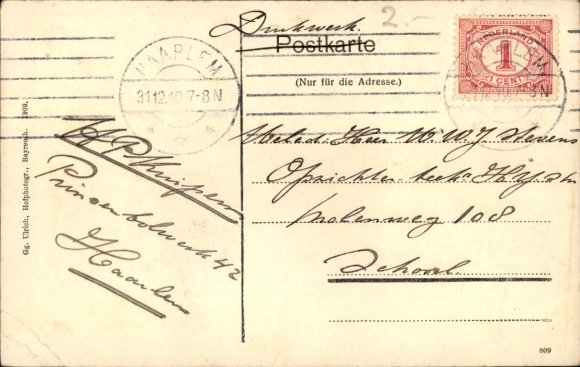 Drukwerk.
2.-
Postkarte
(Nur für die Adresse.)
NEDERLAND
1
CENT
HAARLEM
31.12.10.7-8N
Gg. Ulrich, Hofphotogr., Bayreuth. 1909.
Prinsenbolwerk 42
Haarlem
Heer W.J. Stevens
Opzichter
Molenweg 108
Schoorl.
809